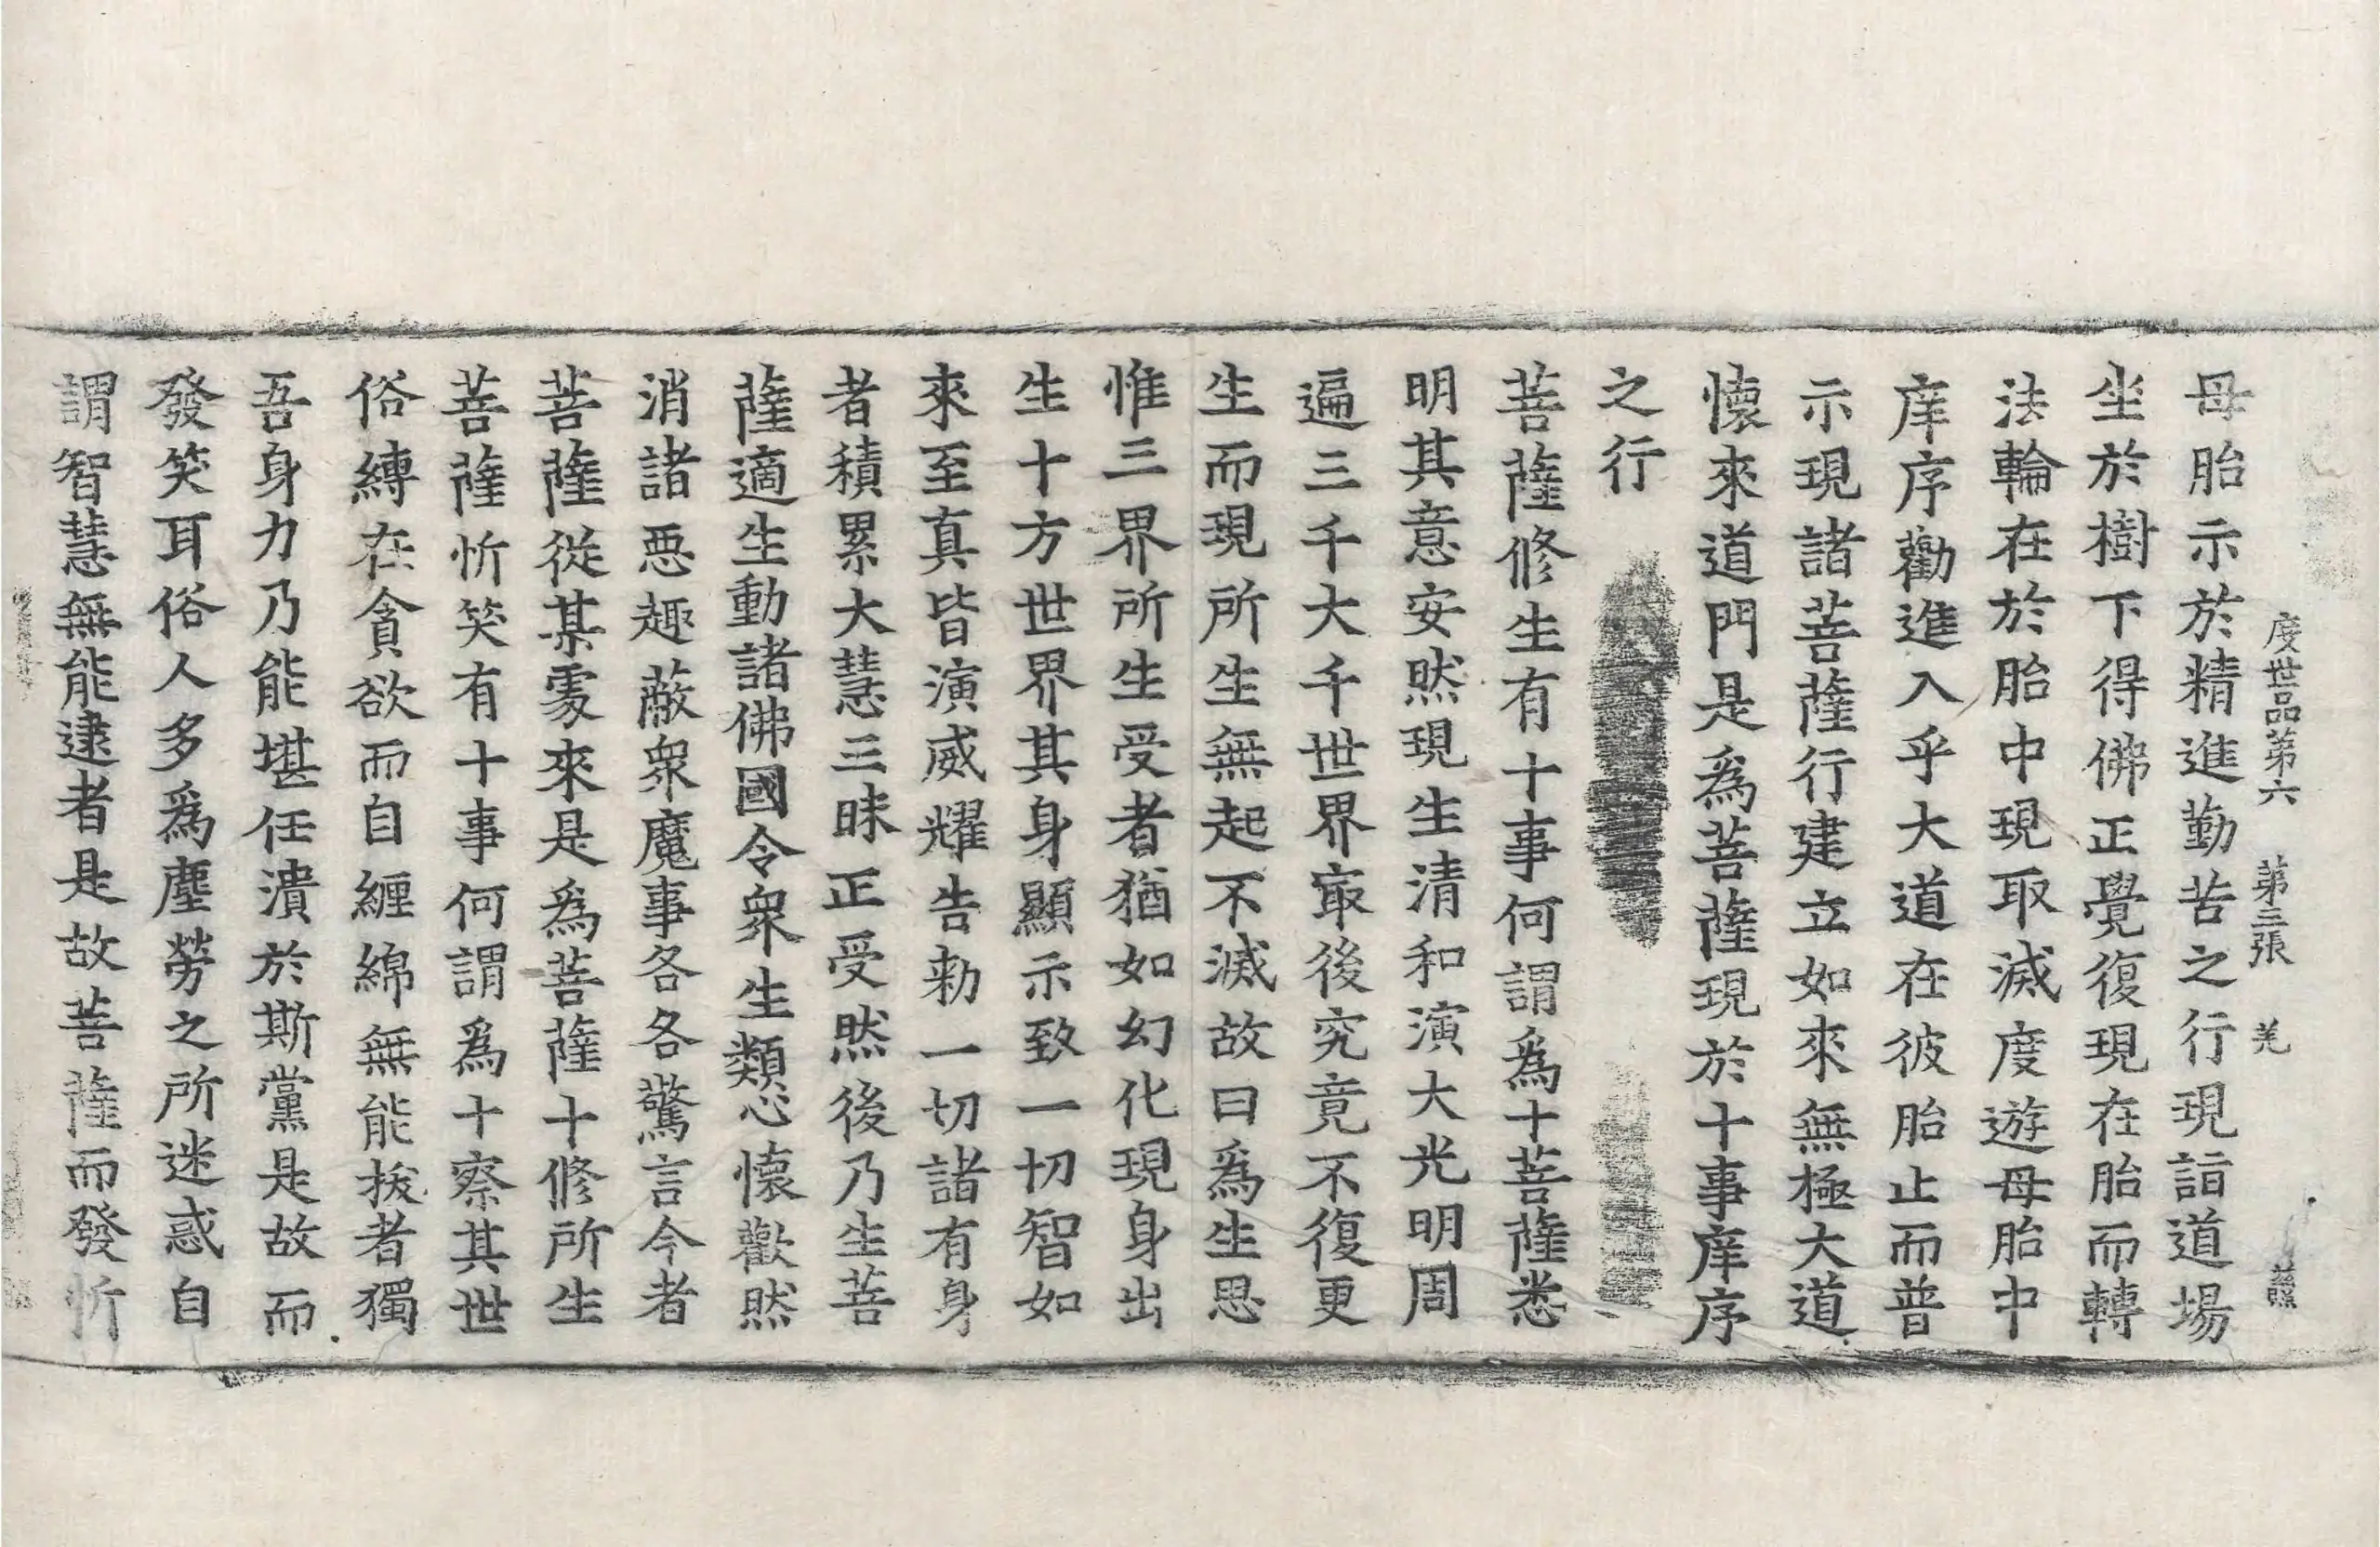 度世品第六　第三張　羌
母胎示於精進勤苦之行現詣道場
坐於樹下得佛正覺復現在胎而轉
法輪在於胎中現取滅度遊母胎中
庠序勸進入乎大道在彼胎止而普
示現諸菩薩行建立如來無極大道
懷來道門是爲菩薩現於十事庠序
之行
菩薩修生有十事何謂爲十菩薩悉
明其意安然現生清和演大光明周
遍三千大千世界㝡後究竟不復更
生而現所生無起不滅故曰爲生思
惟三界所生受者猶如幻化現身出
生十方世界其身顯示致一切智如
來至真皆演威耀告勑一切諸有身
者積累大慧三昧正受然後乃生菩
薩適生動諸佛國令衆生類心懷歡然
消諸惡趣蔽衆魔事各各驚言今者
菩薩從某處來是爲菩薩十修所生
菩薩忻笑有十事何謂爲十察其世
俗縛在貪欲而自纏綿無能拔者獨
吾身力乃能堪任潰於斯黨是故而
發笑耳俗人多爲塵勞之所迷惑自
謂智慧無能逮者是故菩薩而發忻